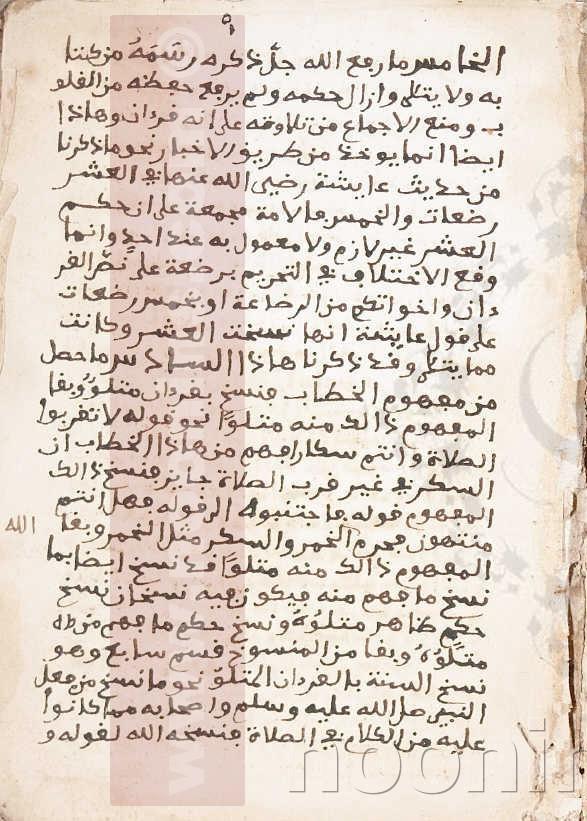 الخامس ما رفع الله جل ذكره رسمه من كتبنا
به ولا يتلى وازال حكمه ولم يرفع حفظه من القلو
ب ومنع الاجماع من تلاوته على انه قرءان وهاذا
ايضا انما يوخذ من طريق الاخبار نحو ما ذكرنا
من حديث عايشة رضي الله عنها في العشر
رضعات والخمس فالامة مجمعة على ان حكم
العشر غير لازم ولا معمول به عند احد وانما
وقع الاختلاف في التحريم برضعة على نص القر
ءان واخواتكم من الرضاعة او بخمس رضعات
على قول عايشة انها نسخت العشر وكانت
مما يتلى وقد ذكرنا هاذا السادس ما حصل
من مفهوم الخطاب فنسخ بقرءان متلو وبقا
المفهوم ذالك منه متلوا نحو قوله لا تقربوا
الصلاة وانتم سكارا فهم من هاذا الخطاب ان
السكر في غير قرب الصلاة جايز فنسخ ذالك
المفهوم قوله فاجتنبوه الى قوله فهل انتم
منتهون فحرم الخمر والسكر مثل الخمر وبقا
المفهوم ذالك منه متلوا قد نسخ ايضا بما
نسخ ما فهم منه فيكون فيه نسخان نسخ
حكم ظاهر متلوه ونسخ حكم ما فهم من
متلوه وبقا من المنسوخ قسم سابع وهو
نسخ السنة بالقرءان المتلو نحو ما نسخ من فعل
النبي صلى الله عليه وسلم واصحابه مما كانوا
عليه من الكلام في الصلاة فنسخه الله لقوله و
الله
noonir